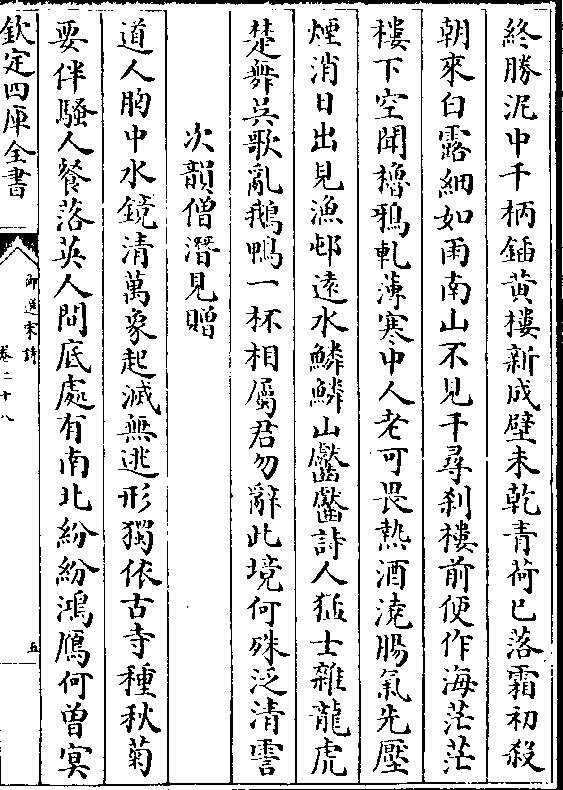 終勝泥中千柄鍤黄樓新成壁未乾青荷已落霜初殺
朝來白露細如雨南山不見千尋刹樓前便作海茫茫
樓下空聞櫓鴉軋薄寒中人老可畏熱酒澆腸氣先壓
煙消日出見漁邨遠水鱗鱗山齾齾詩人猛士雜龍虎
楚舞吳歌亂鵝鴨一杯相屬君勿辭此境何殊泛清霅
次韻僧潛見贈
道人胸中水鏡清萬象起滅無逃形獨依古寺種秋菊
要伴騷人餐落英人間底處有南北紛紛鴻鴈何曽㝠
欽定四庫全書
御選宋詩
卷二十八
五